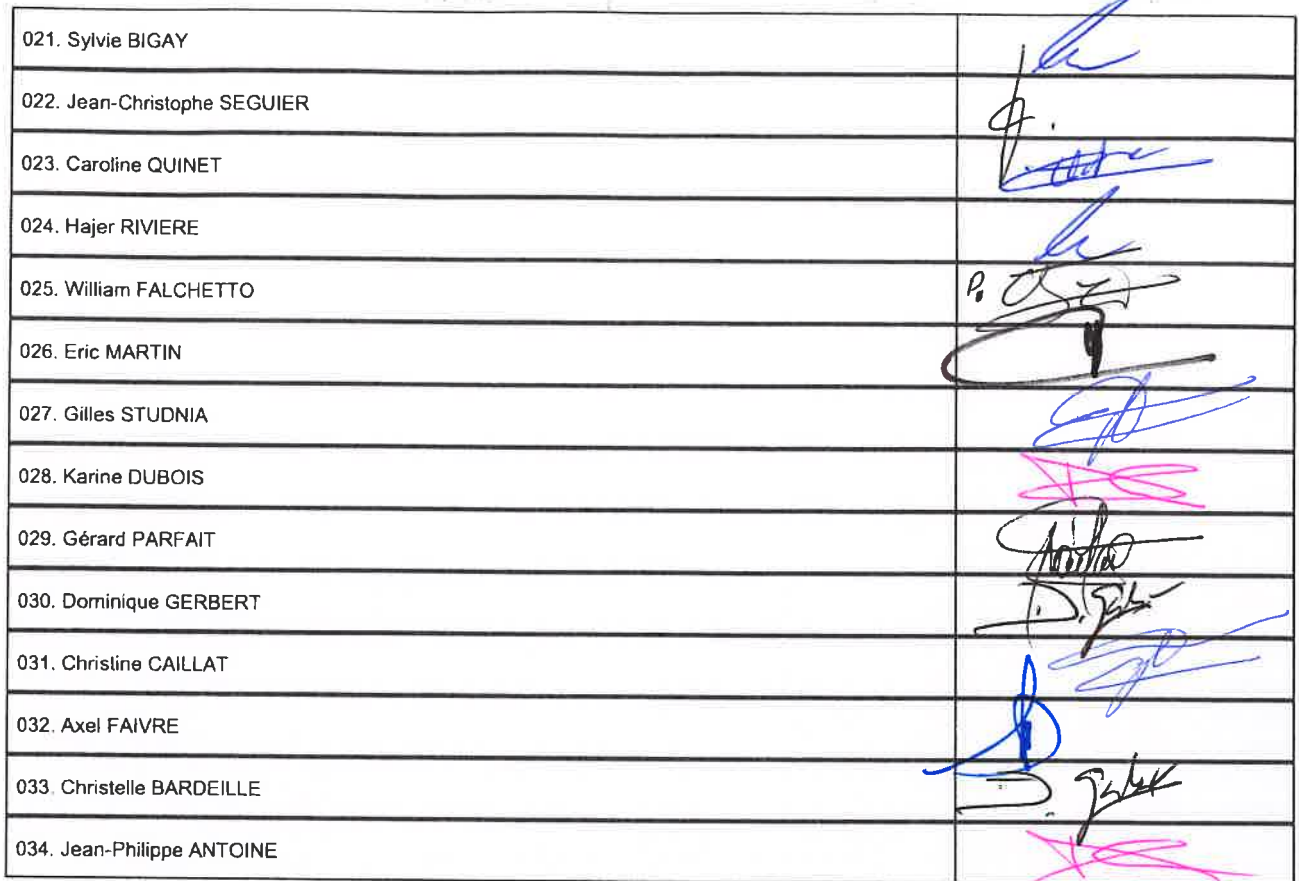 021. Sylvie BIGAY
022. Jean-Christophe SEGUIER
023. Caroline QUINET
024. Hajer RIVIERE
025. William FALCHETTO
P.
026. Eric MARTIN
027. Gilles STUDNIA
028. Karine DUBOIS
029. Gérard PARFAIT
030. Dominique GERBERT
D.
031. Christine CAILLAT
032. Axel FAIVRE
033. Christelle BARDEILLE
D.
034. Jean-Philippe ANTOINE